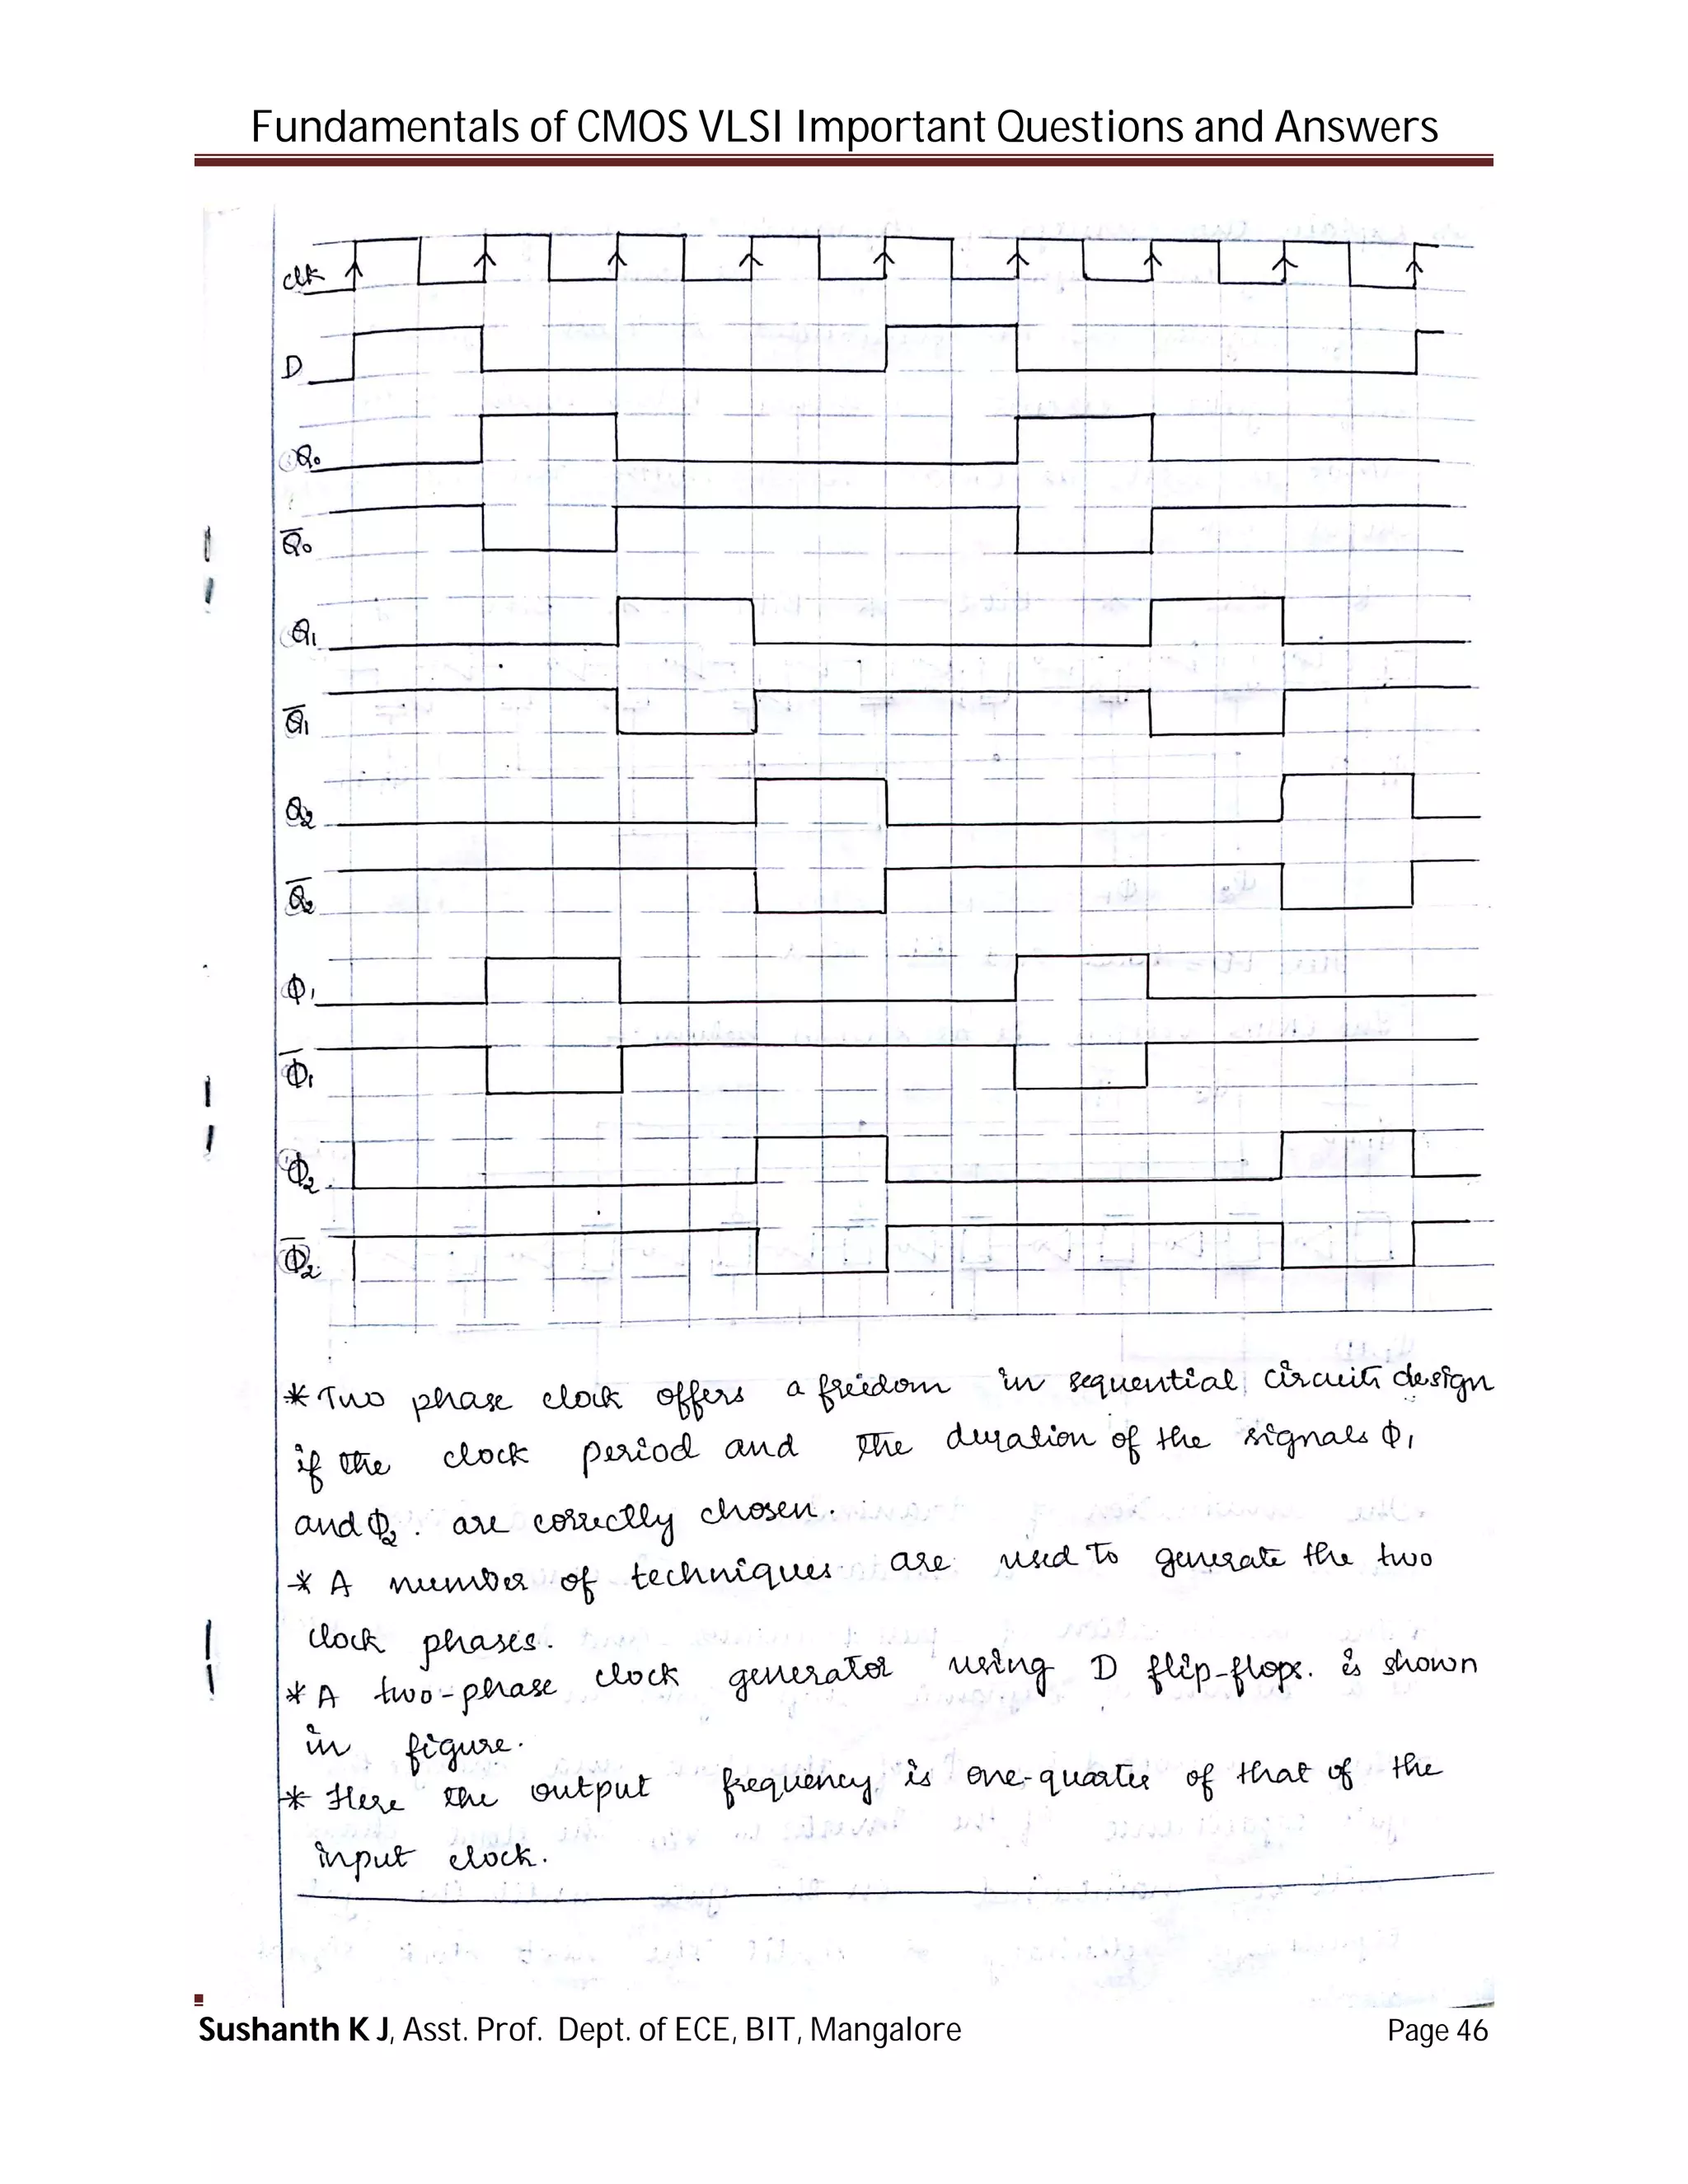 Fundamentals of CMOS VLSI Important Questions and Answers
clk
D
Q₀
Q̅₀
Q₁
Q̅₁
Q₂
Q̅₂
Φ₁
Φ̅₁
Φ₂
Φ̅₂
* Two phase clock offers a freedom in sequential circuit design
if the clock period and the duration of the signals Φ₁
and Φ₂. are correctly chosen.
* A number of techniques are used to generate the two
clock phases.
* A two-phase clock generator using D flip-flops. is shown
in figure.
* Here the output frequency is one-quarter of that of the
input clock.
Sushanth K J, Asst. Prof. Dept. of ECE, BIT, Mangalore Page 46